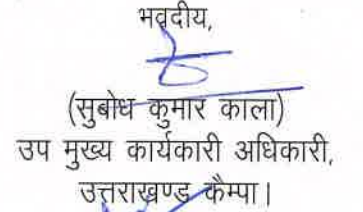 भवदीय,
(सुबोध कुमार काला)
उप मुख्य कार्यकारी अधिकारी,
उत्तराखण्ड कैम्पा।